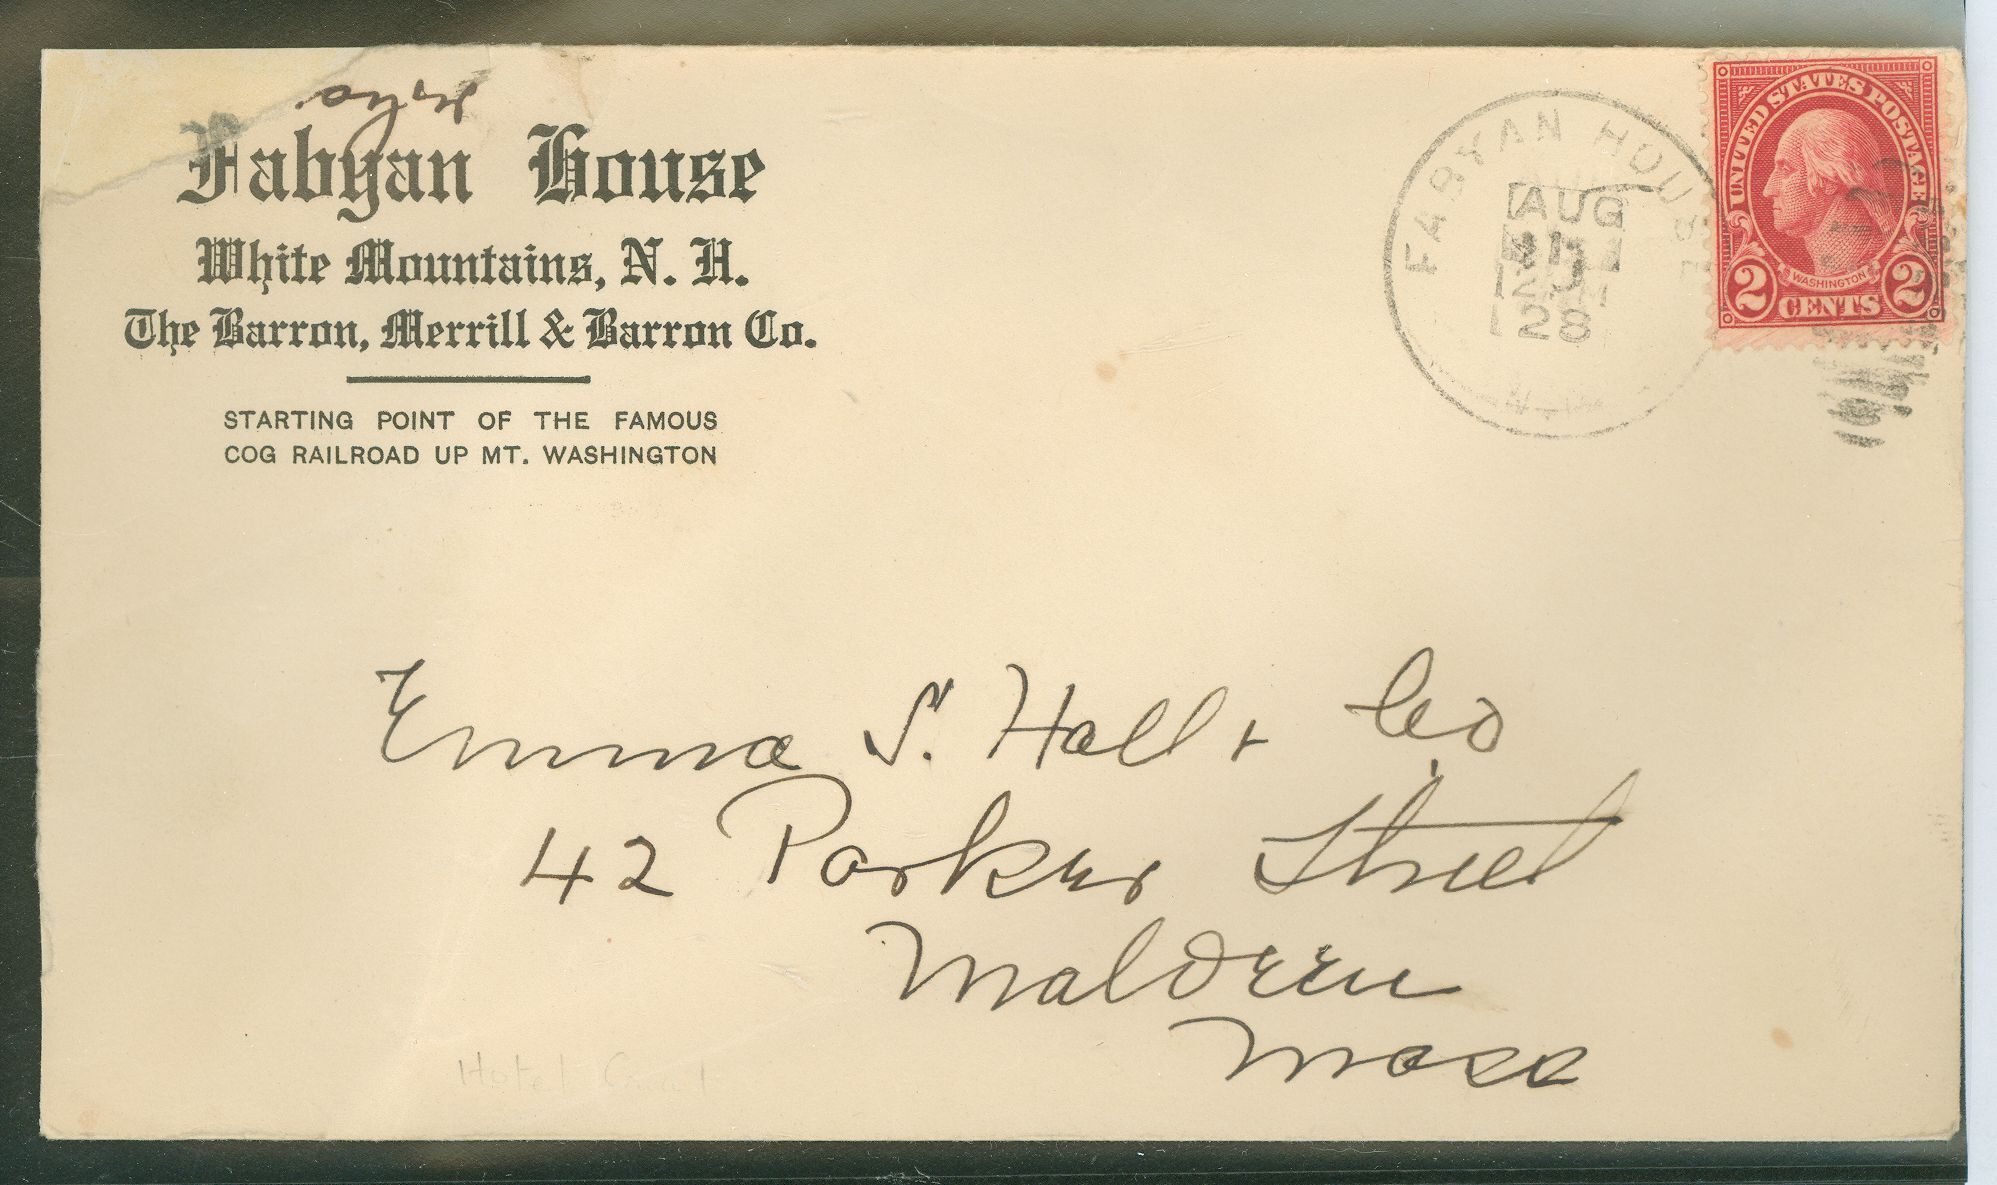 Fabyan House
White Mountains, N. H.
The Barron, Merrill & Barron Co.
STARTING POINT OF THE FAMOUS
COG RAILROAD UP MT. WASHINGTON
FABYAN HOUSE
AUG
28
N.H.
UNITED STATES POSTAGE
WASHINGTON
2 CENTS 2
Emma S. Hall & Co
42 Parker Street
Malden
Mass
Hotel